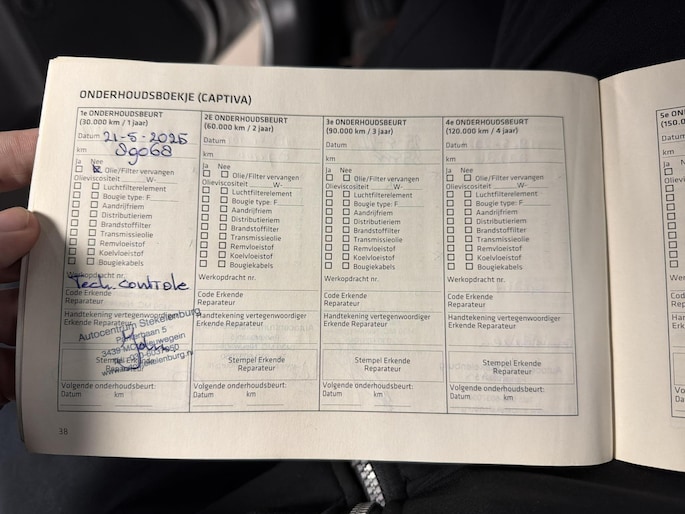 ONDERHOUDSBOEKJE (CAPTIVA)
1e ONDERHOUDSBEURT
(30.000 km / 1 jaar)
Datum 21-5-2025
km 89068
Ja Nee
Olie/Filter vervangen
Olieviscositeit W-
Luchtfilterelement
Bougie type: F
Aandrijfriem
Distributieriem
Brandstoffilter
Transmissieolie
Remvloeistof
Koelvloeistof
Bougiekabels
Werkopdracht nr.
Tech. controle
Code Erkende
Reparateur
Handtekening vertegenwoordiger
Erkende Reparateur
Autocentrum Stekelenburg
Stempel Erkende
Reparateur
Volgende onderhoudsbeurt:
Datum km
2E ONDERHOUDSBEURT
(60.000 km / 2 jaar)
Datum
km
Ja Nee
Olie/Filter vervangen
Olieviscositeit W-
Luchtfilterelement
Bougie type: F
Aandrijfriem
Distributieriem
Brandstoffilter
Transmissieolie
Remvloeistof
Koelvloeistof
Bougiekabels
Werkopdracht nr.
Code Erkende
Reparateur
Handtekening vertegenwoordiger
Erkende Reparateur
Stempel Erkende
Reparateur
Volgende onderhoudsbeurt:
Datum km
3e ONDERHOUDSBEURT
(90.000 km / 3 jaar)
Datum
km
Ja Nee
Olie/Filter vervangen
Olieviscositeit W-
Luchtfilterelement
Bougie type: F
Aandrijfriem
Distributieriem
Brandstoffilter
Transmissieolie
Remvloeistof
Koelvloeistof
Bougiekabels
Werkopdracht nr.
Code Erkende
Reparateur
Handtekening vertegenwoordiger
Erkende Reparateur
Stempel Erkende
Reparateur
Volgende onderhoudsbeurt:
Datum km
4e ONDERHOUDSBEURT
(120.000 km / 4 jaar)
Datum
km
Ja Nee
Olie/Filter vervangen
Olieviscositeit W-
Luchtfilterelement
Bougie type: F
Aandrijfriem
Distributieriem
Brandstoffilter
Transmissieolie
Remvloeistof
Koelvloeistof
Bougiekabels
Werkopdracht nr.
Code Erkende
Reparateur
Handtekening vertegenwoordiger
Erkende Reparateur
Stempel Erkende
Reparateur
Volgende onderhoudsbeurt:
Datum km
38